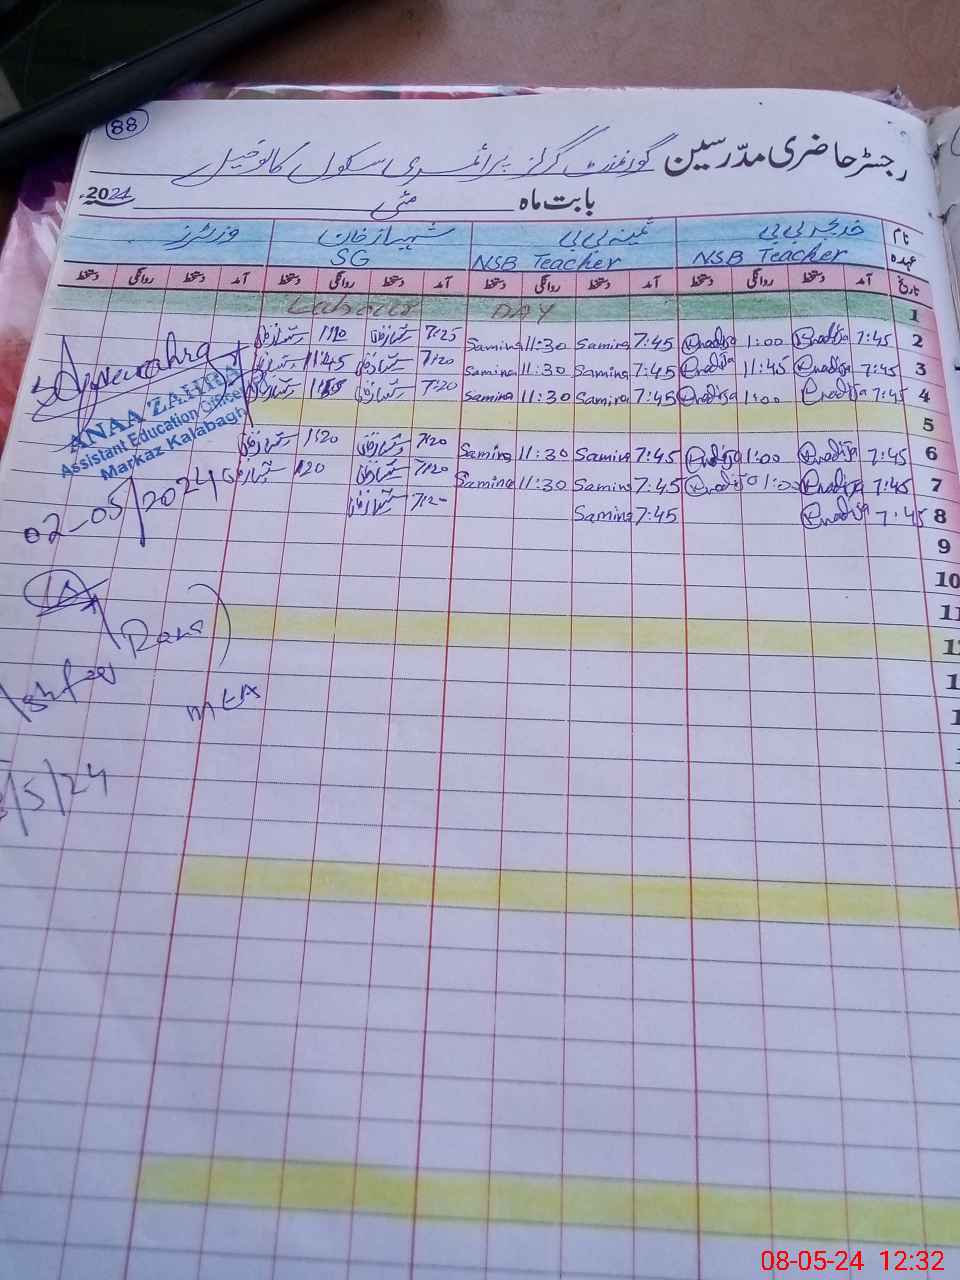 88
رجسٹر حاضری مدرسین گورنمنٹ گرلز پرائمری سکول کالوخیل
بابت ماہ مئی 2024ء
نام خدیجہ بی بی ثمینہ بی بی شہباز خان وزیٹرز
عہدہ NSB Teacher NSB Teacher SG
تاریخ آمد دستخط روانگی دستخط آمد دستخط روانگی دستخط آمد دستخط روانگی دستخط آمد دستخط روانگی دستخط
1 Labour DAY
2 7:45 Khadija 1:00 Khadija 7:45 Samina 11:30 Samina 7:25
3 7:45 Khadija 11:45 Khadija 7:45 Samina 11:30 Samina 7:20 11:45
4 7:45 Khadija 1:00 Khadija 7:45 Samina 11:30 Samina 7:20
5
6 7:45 Khadija 1:00 Khadija 7:45 Samina 11:30 Samina 7:20 1:20
7 7:45 Khadija 1:00 Khadija 7:45 Samina 11:30 Samina 7:20 1:20
8 7:45 Khadija 7:45 Samina 7:20
9
10
11
ANAA ZAHRA
Assistant Education Officer
Markaz Kalabagh
02-05/2024
(Rana
Ashfaq
MEA
/5/24
08-05-24 12:32